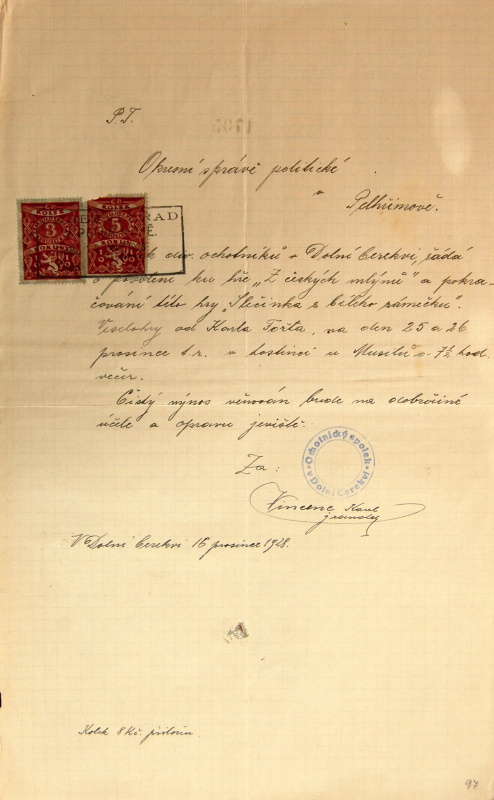 P.T.
Okresní správě politické
v
Pelhřimově.
KOLEK
3
KORUNY
KOLEK
5
KORUN
div. ochotníků v Dolní Cerekvi, žádá
o povolení ku hře „Z českých mlýnů" a pokra-
čování této hry „Slečinka z bílého zámečku".
Veselohry od Karla Tošta, na den 25 a 26
prosince t.r. v hostinci u Musilů o 7½ hod.
večer.
Čistý výnos věnován bude na dobročiné
účele a opravu jeviště.
Za:
Ochotnický spolek
v Dolní Cerekvi
Vincenc Karel
jednatel
V Dolní Cerekvi 16 prosince 1928.
Kolek 8 Kč.
97